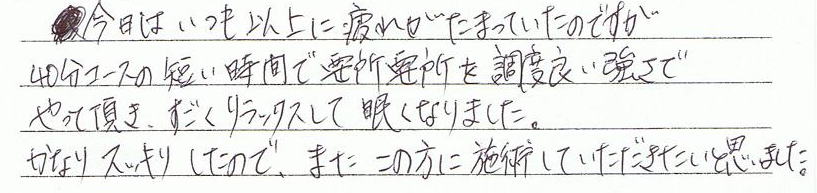 今日はいつも以上に疲れがたまっていたのですが
40分コースの短い時間で要所要所を調度良い強さで
やって頂き、すごくリラックスして眠くなりました。
かなりスッキリしたので、またこの方に施術していただきたいと思いました。